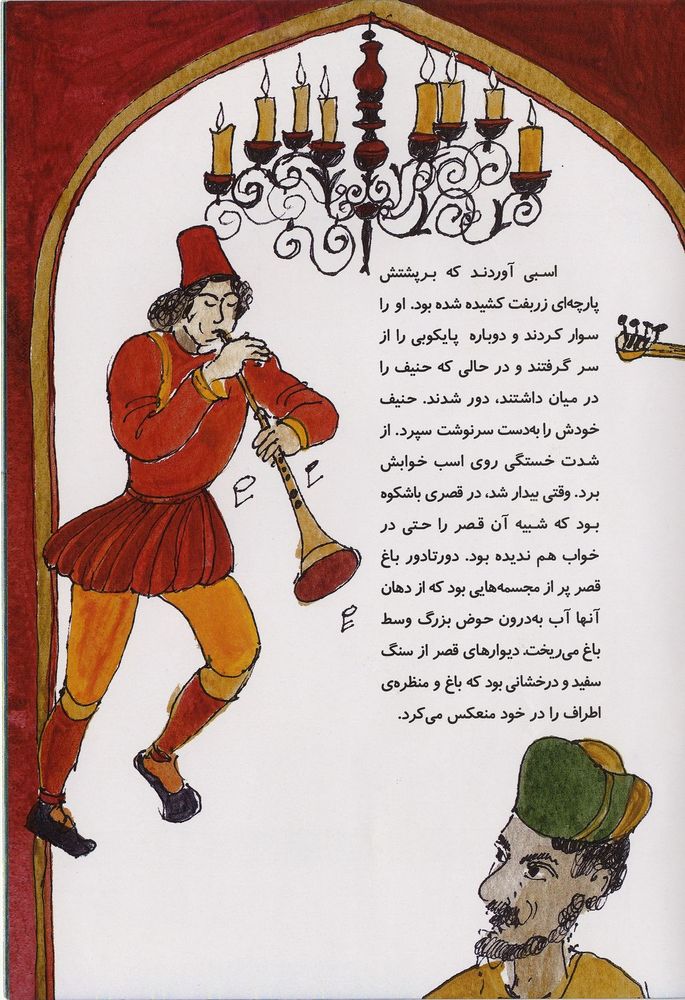 اسبی آوردند که برپشتش
پارچه‌ای زربفت کشیده شده بود. او را
سوار کردند و دوباره پایکوبی را از
سر گرفتند و در حالی که حنیف را
در میان داشتند، دور شدند. حنیف
خودش را به‌دست سرنوشت سپرد. از
شدت خستگی روی اسب خوابش
برد. وقتی بیدار شد، در قصری باشکوه
بود که شبیه آن قصر را حتی در
خواب هم ندیده بود. دورتادور باغ
قصر پر از مجسمه‌هایی بود که از دهان
آنها آب به‌درون حوض بزرگ وسط
باغ می‌ریخت. دیوارهای قصر از سنگ
سفید و درخشانی بود که باغ و منظره‌ی
اطراف را در خود منعکس می‌کرد.